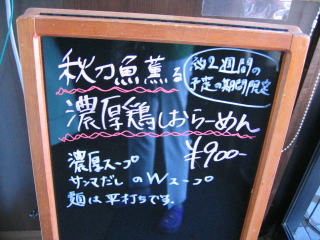 秋刀魚薫る
約2週間の
予定の期間限定
濃厚鶏しおらーめん
¥900-
濃厚スープ
サンマだしのWスープ
麺は平打ちです。